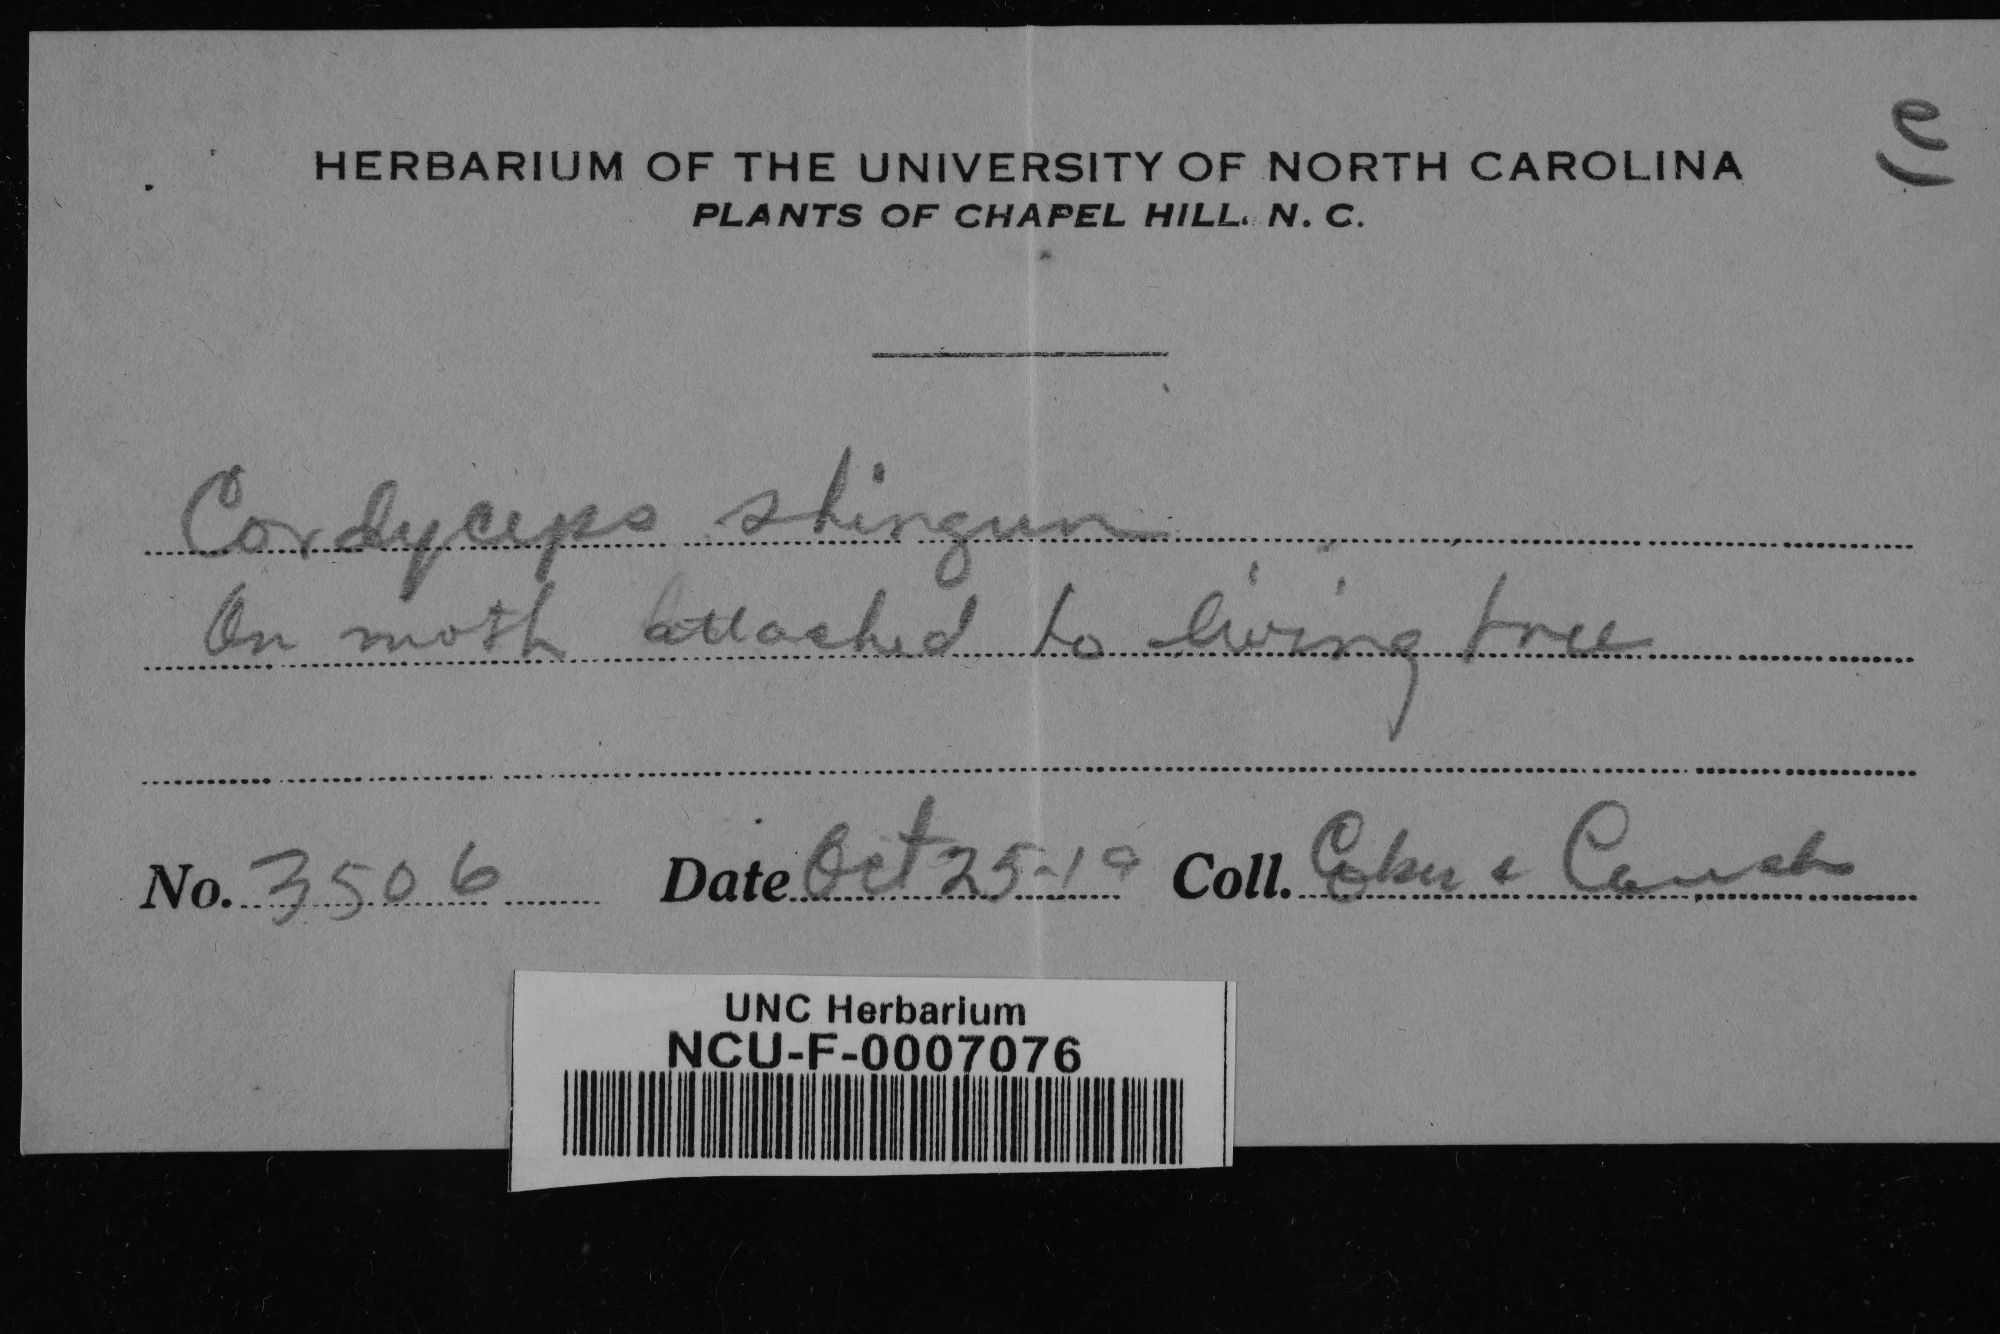 HERBARIUM OF THE UNIVERSITY OF NORTH CAROLINA
PLANTS OF CHAPEL HILL, N. C.
Cordyceps
On moth attached to living tree
No. 3506 Date Oct 25-19 Coll. Coker & Couch
UNC Herbarium
NCU-F-0007076